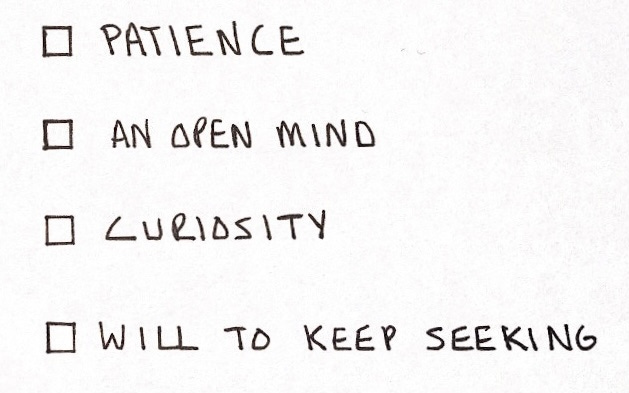 PATIENCE
AN OPEN MIND
CURIOSITY
WILL TO KEEP SEEKING